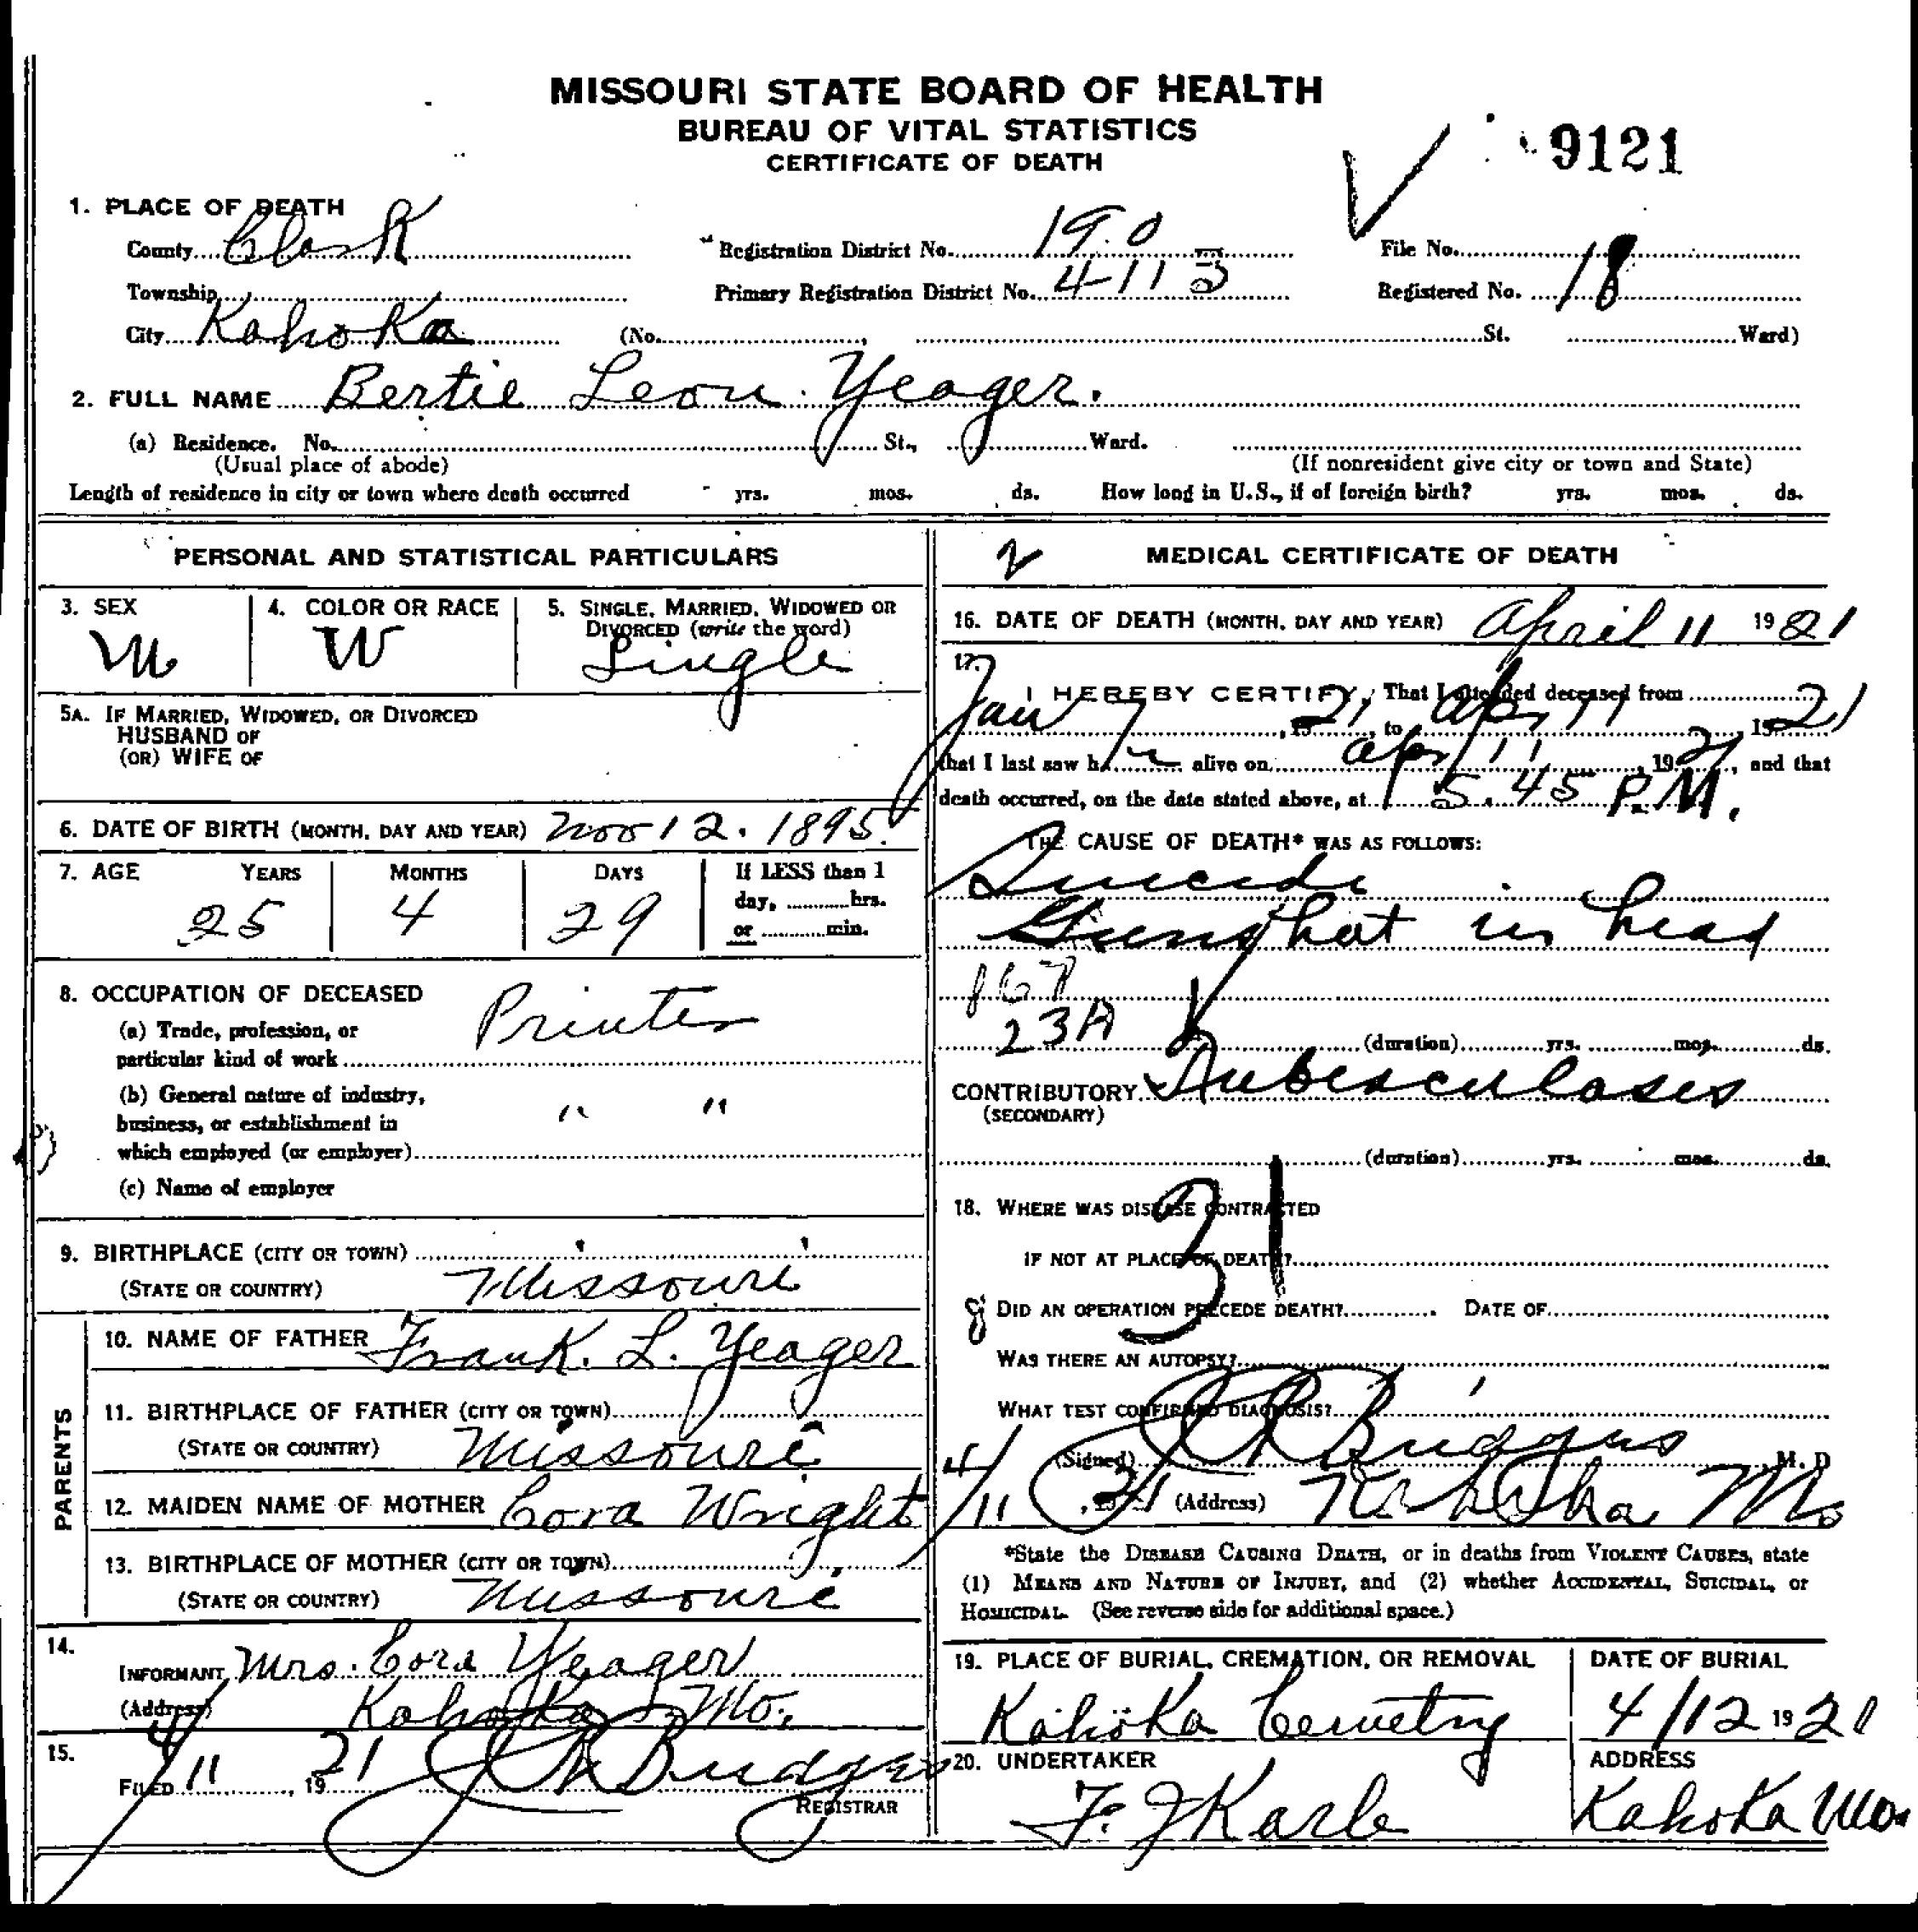 MISSOURI STATE BOARD OF HEALTH
BUREAU OF VITAL STATISTICS
CERTIFICATE OF DEATH
9121
1. PLACE OF DEATH
County Clark Registration District No. 190 File No.
Township Primary Registration District No. 4113 Registered No. 18
City Kahoka (No. , St. Ward)
2. FULL NAME Bertie Leon Yeager.
(a) Residence. No. St., Ward.
(Usual place of abode) (If nonresident give city or town and State)
Length of residence in city or town where death occurred yrs. mos. ds. How long in U.S., if of foreign birth? yrs. mos. ds.
PERSONAL AND STATISTICAL PARTICULARS
3. SEX 4. COLOR OR RACE 5. SINGLE, MARRIED, WIDOWED OR
DIVORCED (write the word)
M W Single
5A. IF MARRIED, WIDOWED, OR DIVORCED
HUSBAND OF
(OR) WIFE OF
6. DATE OF BIRTH (MONTH, DAY AND YEAR) Nov 12. 1895
7. AGE YEARS MONTHS DAYS If LESS than 1
day, hrs.
or min.
25 4 29
8. OCCUPATION OF DECEASED
(a) Trade, profession, or
particular kind of work Printer
(b) General nature of industry,
business, or establishment in
which employed (or employer) " "
(c) Name of employer
9. BIRTHPLACE (CITY OR TOWN)
(STATE OR COUNTRY) Missouri
PARENTS
10. NAME OF FATHER Frank. L. Yeager
11. BIRTHPLACE OF FATHER (CITY OR TOWN)
(STATE OR COUNTRY) Missouri
12. MAIDEN NAME OF MOTHER Cora Wright
13. BIRTHPLACE OF MOTHER (CITY OR TOWN)
(STATE OR COUNTRY) Missouri
14.
INFORMANT Mrs. Cora Yeager
(Address) Kahoka Mo.
15.
FILED 4/11, 1921
REGISTRAR
2 MEDICAL CERTIFICATE OF DEATH
16. DATE OF DEATH (MONTH, DAY AND YEAR) April 11 1921
17.
I HEREBY CERTIFY, That I attended deceased from
Jan 7, 21, to Apr 11 1921
that I last saw h alive on Apr 11, 1921, and that
death occurred, on the date stated above, at 5.45 P.M.
THE CAUSE OF DEATH* WAS AS FOLLOWS:
Suicide
Gunshot in head
167
23A (duration) yrs. mos. ds.
CONTRIBUTORY Tuberculoses
(SECONDARY)
(duration) yrs. mos. ds.
31
18. WHERE WAS DISEASE CONTRACTED
IF NOT AT PLACE OF DEATH?
DID AN OPERATION PRECEDE DEATH? DATE OF
WAS THERE AN AUTOPSY?
WHAT TEST CONFIRMED DIAGNOSIS?
(Signed) M. D
4/11, 21 (Address) Kahoka Mo
*State the DISEASE CAUSING DEATH, or in deaths from VIOLENT CAUSES, state
(1) MEANS AND NATURE OF INJURY, and (2) whether ACCIDENTAL, SUICIDAL, or
HOMICIDAL. (See reverse side for additional space.)
19. PLACE OF BURIAL, CREMATION, OR REMOVAL DATE OF BURIAL
Kahoka Cemetry 4/12 1921
20. UNDERTAKER ADDRESS
F. J Karle Kahoka Mo.